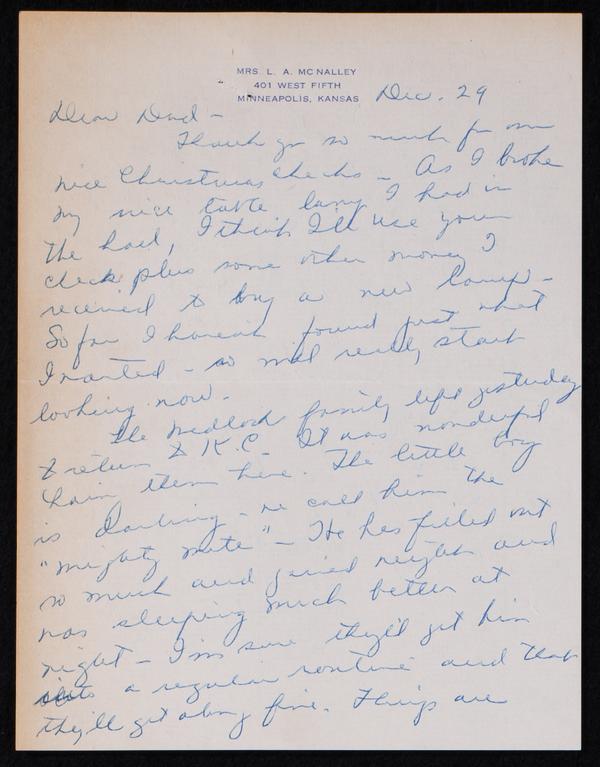 MRS. L. A. MCNALLEY
401 WEST FIFTH
MINNEAPOLIS, KANSAS
Dec. 29
Dear Dad -
Thank you so much for our
nice Christmas checks - As I broke
my nice table lamp I had in
the hall, I think I'll use your
check plus some other money I
received to buy a new lamp -
So far I haven't found just what
I wanted - so will really start
looking now.
The Medlock family left yesterday
to return to K.C. It was wonderful
havin them here. The little boy
is darling - we call him the
"mighty mite" - He has filled out
so much and gained weight and
was sleeping much better at
night - I'm sure they'll get him
into a regular routine and that
they'll get along fine. Things are